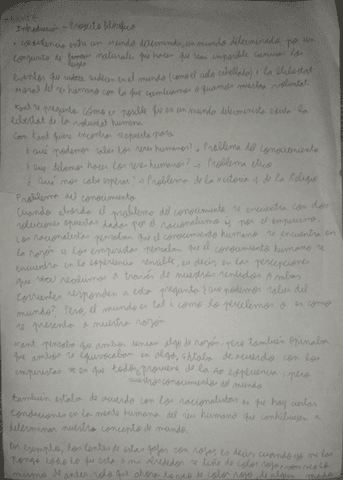 KANT
Introducción - Proyecto filosófico
• coexistencia entre un mundo determinado, un mundo determinado por un
conjunto de leyes naturales que hacen que sea imposible cambiar los
eventos que suceden en el mundo (como el caso cebollado) y la libertad
moral del ser humano con la que cambiamos a quamos nuestra voluntad.
Kant se pregunta cómo es posible que en un mundo determinado exista la
libertad de la voluntad humana
Con Kant quiere encontrar respuesta para
¿ qué podemos saber los seres humanos? → Problema del conocimiento
¿ que debemos hacer los seres humanos? → Problema ético
¿ Qué nos cabe esperar? → Problema de la historia y de la Religión
Problema del conocimiento
Cuando aborda el problema del conocimiento se encuentra con dos
soluciones opuestas dadas por el racionalismo y por el empirismo.
Los racionalistas pensaban que el conocimiento humano se encuentra en
la razón y los empiristas pensaban que el conocimiento humano se
encuentra en la experiencia sensible, es decir, en las percepciones
que recibimos a través de nuestros sentidos. Ambas
corrientes responden a esta pregunta ¿que podemos saber del
mundo? Pero, el mundo es tal y como lo percibimos o es como
se presenta a nuestra razón
Kant pensaba que ambos tenían algo de razón pero también opinaba
que ambos se equivocaban en algo, Estaba de acuerdo con los
empiristas en que todos proviene de la experiencia, pero
nuestro conocimiento del mundo
también estaba de acuerdo con los racionalistas en que hay ciertas
condiciones en la mente humana del ser humano que contribuyen a
determinar nuestro concepto de mundo.
Por ejemplo, los lentes de estas gafas son rojas es decir cuando yo me las
pongo todo lo que está a mi alrededor se tiñe de color rojo,
mismo de antes solo que ahora de color rojo de algún modo